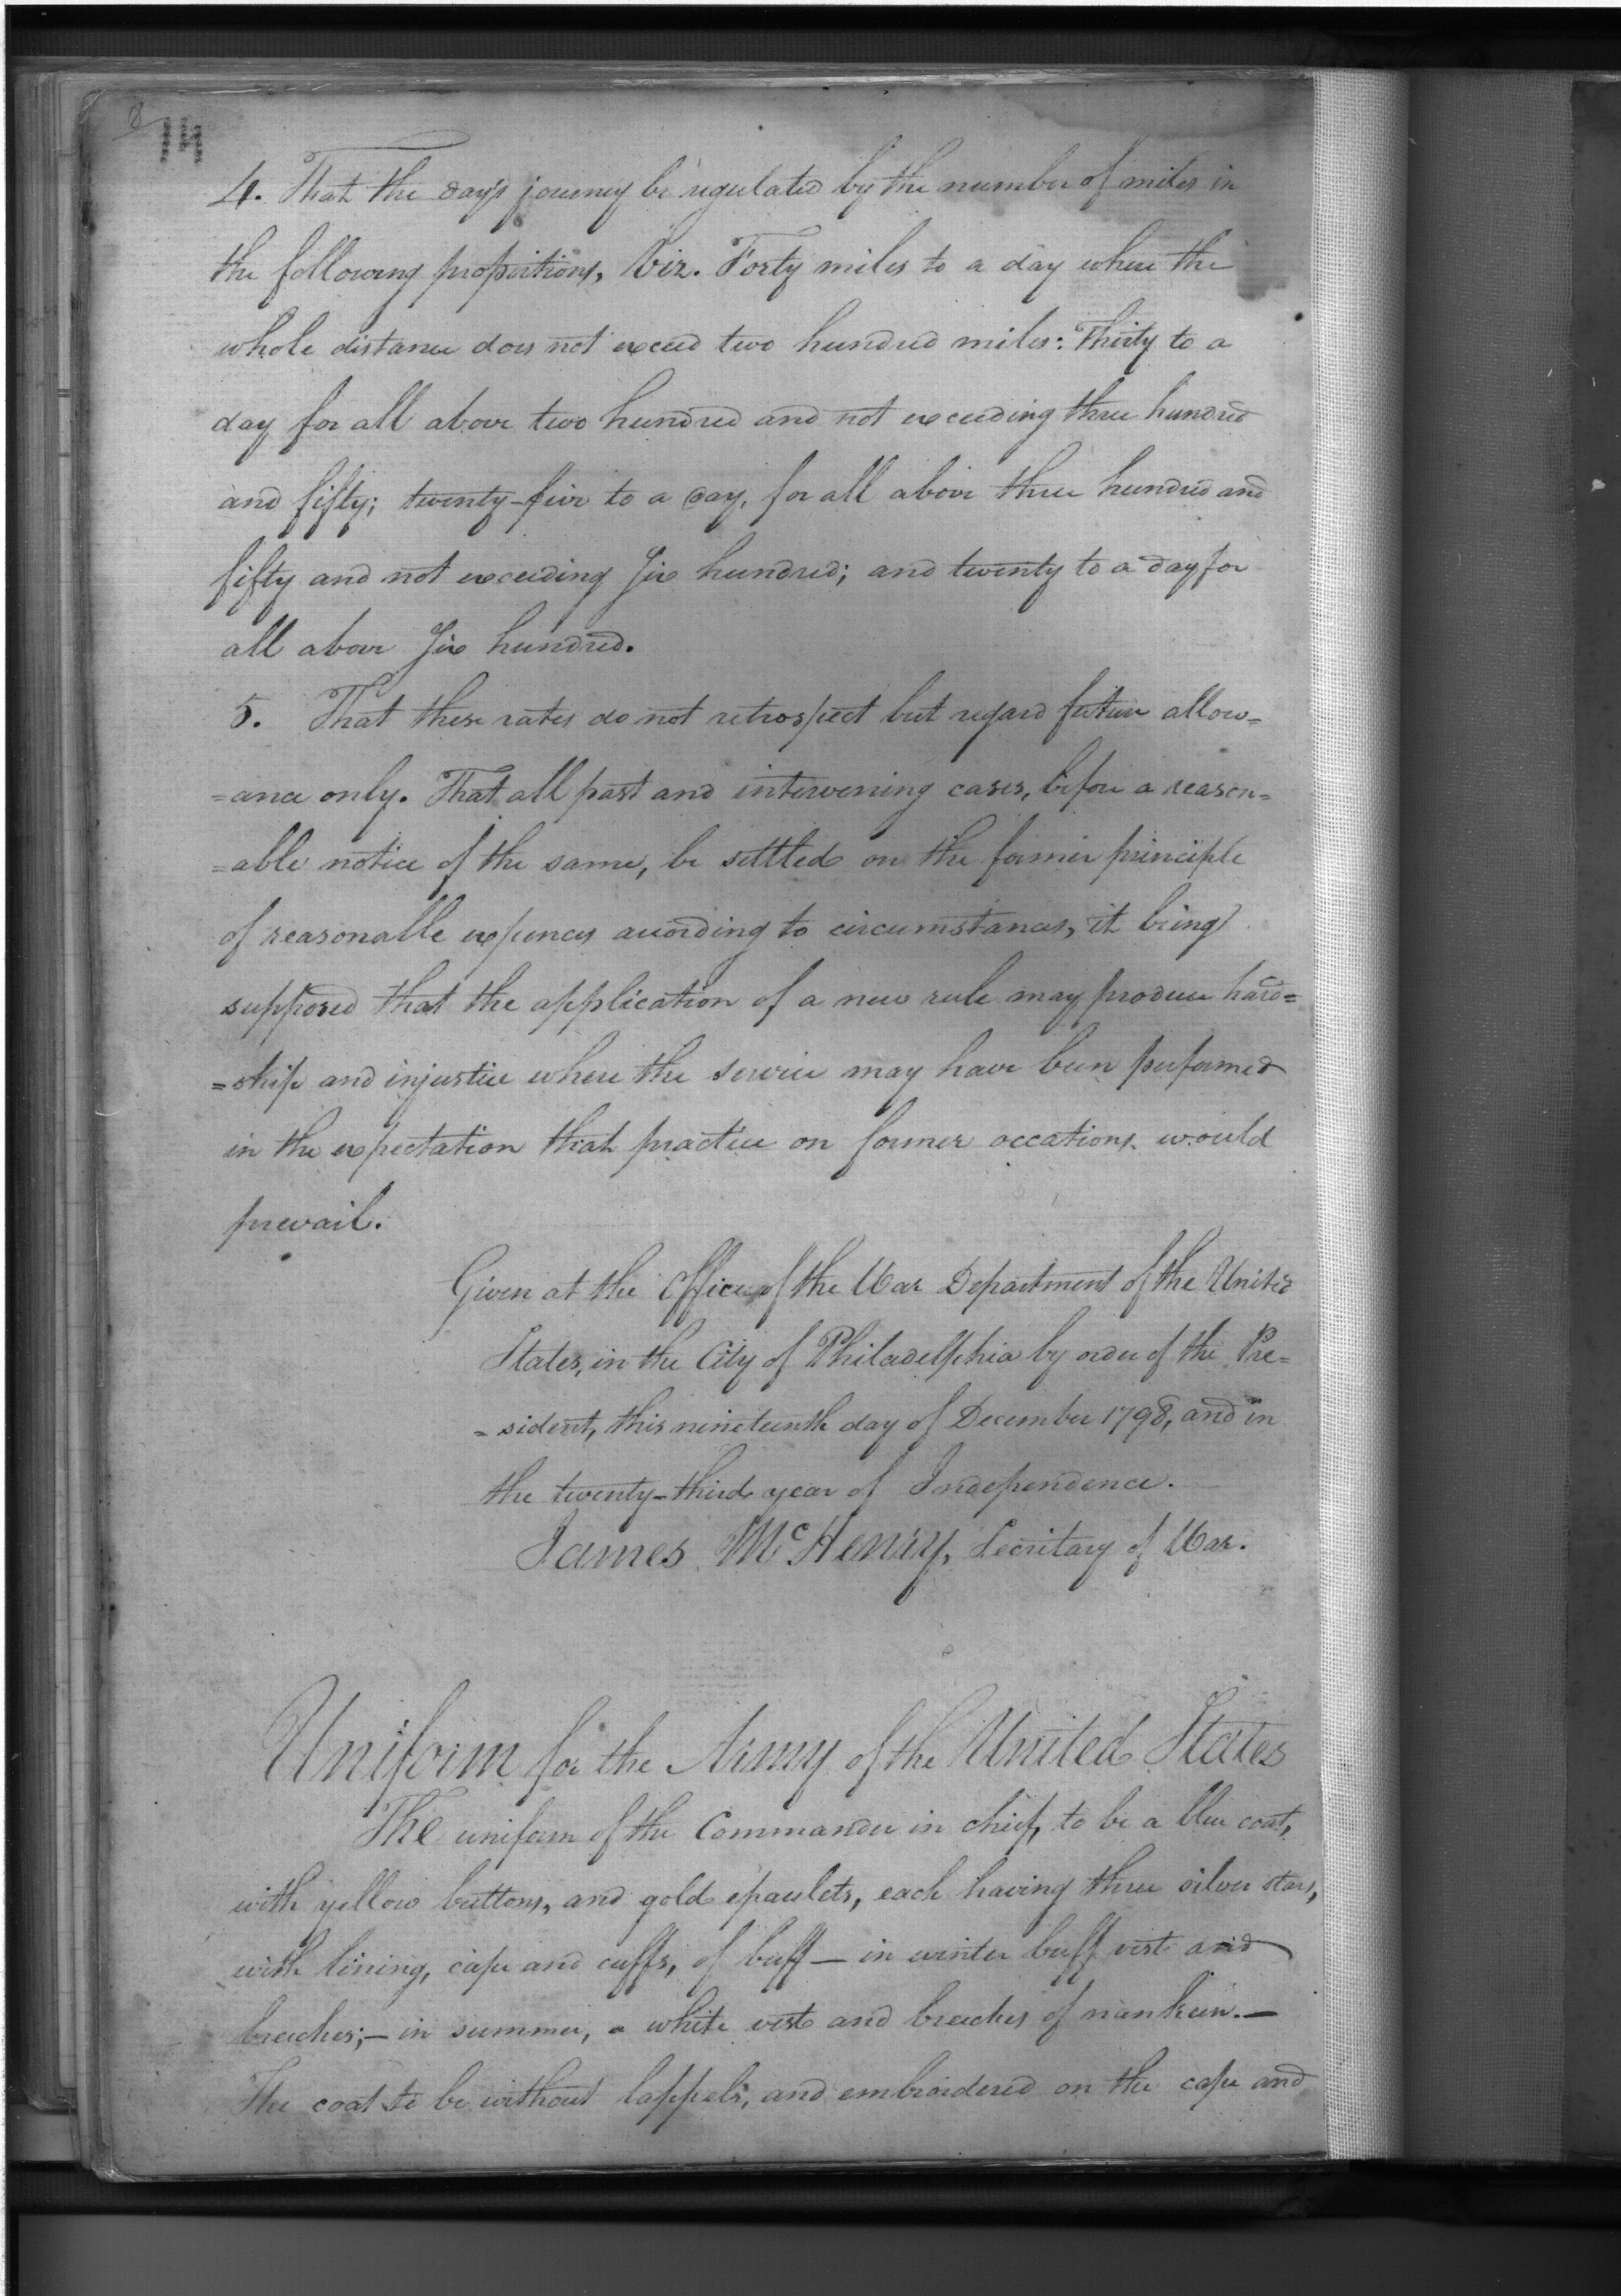 8
4. That the day's journey be regulated by the number of miles in
the following proportions, Viz. Forty miles to a day where the
whole distance does not exceed two hundred miles: Thirty to a
day for all above two hundred and not exceeding three hundred
and fifty; twenty-five to a day, for all above three hundred and
fifty and not exceeding Six hundred; and twenty to a day for
all above Six hundred.
5. That these rates do not retrospect but regard future allow=
=ance only. That all past and intervening cases, before a reason=
=able notice of the same, be settled on the former principle
of reasonable expences according to circumstances, it being
supposed that the application of a new rule may produce hard=
=ship and injustice where the service may have been performed
in the expectation that practice on former occations would
prevail.
Given at the Office of the War Department of the United
States, in the City of Philadelphia by order of the Pre=
=sident, this nineteenth day of December 1798, and in
the twenty-third year of Independence.
James McHenry, Secretary of War.
Uniform for the Army of the United States
The uniform of the Commander in chief, to be a blue coat,
with yellow buttons, and gold epaulets, each having three silver stars,
with lining, cape and cuffs, of buff — in winter buff vest and
breeches; — in summer, a white vest and breeches of nankeen. —
The coat to be without lappels, and embroidered on the cape and